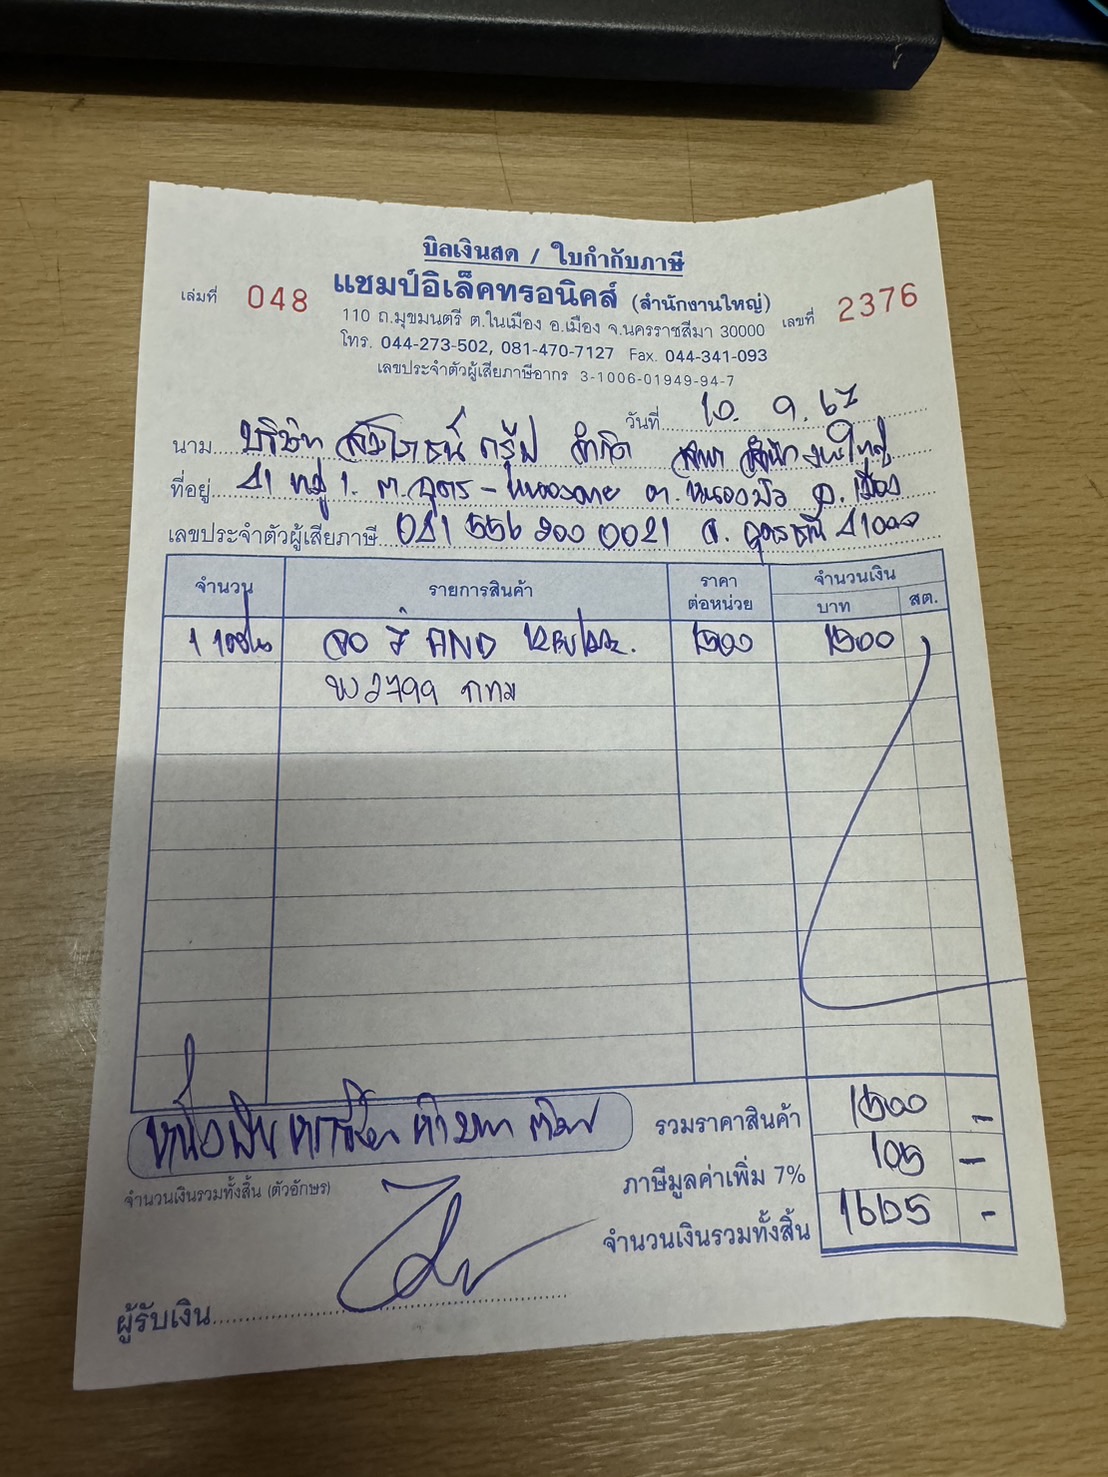 บิลเงินสด / ใบกำกับภาษี
แชมป์อิเล็คทรอนิคส์ (สำนักงานใหญ่)
เล่มที่ 048
เลขที่ 2376
110 ถ.มุขมนตรี ต.ในเมือง อ.เมือง จ.นครราชสีมา 30000
โทร. 044-273-502, 081-470-7127 Fax. 044-341-093
เลขประจำตัวผู้เสียภาษีอากร 3-1006-01949-94-7
วันที่ 10. 9. 67
นาม บริษัท กรุ๊ป จำกัด สำนักงานใหญ่
ที่อยู่ 41 หมู่ 1. ถ.อุดร - ต.หนองบัว อ.เมือง
เลขประจำตัวผู้เสียภาษี 041 556 000 0021 จ. อุดรธานี 41000
จำนวน รายการสินค้า ราคาต่อหน่วย จำนวนเงิน
บาท สต.
1 เครื่อง จอ AND 1500 1500
2799 กทม
รวมราคาสินค้า 1500 -
ภาษีมูลค่าเพิ่ม 7% 105 -
จำนวนเงินรวมทั้งสิ้น 1605 -
หนึ่งพันหกร้อยห้าบาทถ้วน
จำนวนเงินรวมทั้งสิ้น (ตัวอักษร)
ผู้รับเงิน